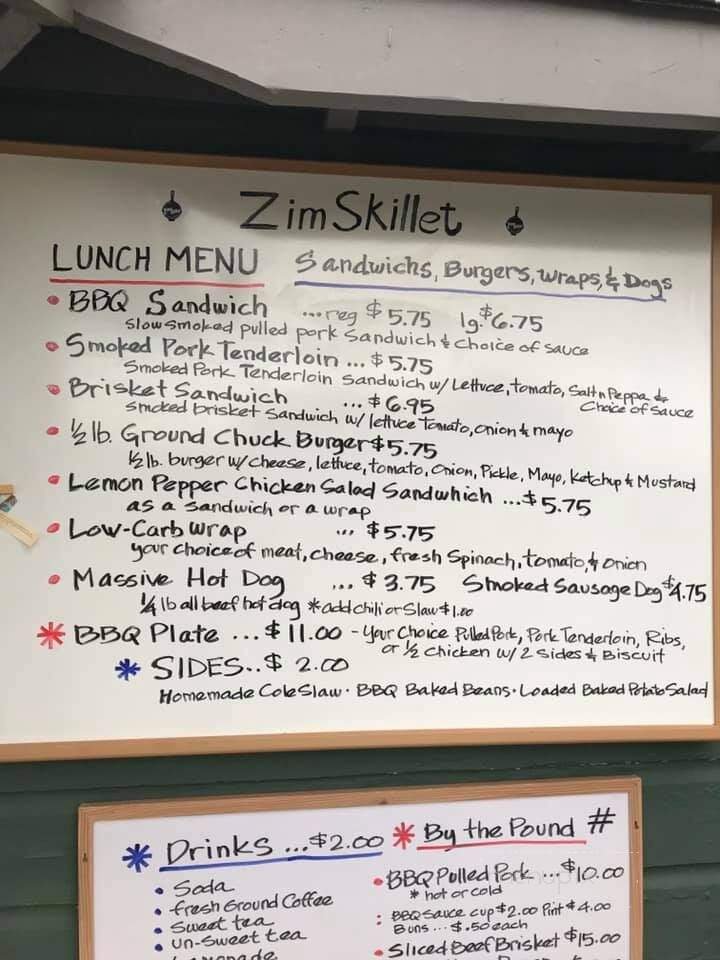 Zim Skillet
LUNCH MENU Sandwichs, Burgers, Wraps, & Dogs
• BBQ Sandwich ...reg $5.75 lg. $6.75
Slow smoked pulled pork Sandwich & Choice of Sauce
• Smoked Pork Tenderloin ... $5.75
Smoked Pork Tenderloin Sandwich w/ Lettuce, tomato, Salt n Peppa &
Choice of Sauce
• Brisket Sandwich ... $6.95
Smoked brisket Sandwich w/ lettuce tomato, onion & mayo
• ½ lb. Ground Chuck Burger $5.75
½ lb. burger w/ cheese, lettuce, tomato, Onion, Pickle, Mayo, Ketchup & Mustard
• Lemon Pepper Chicken Salad Sandwhich ... $5.75
as a sandwich or a wrap
• Low-Carb Wrap ... $5.75
your choice of meat, cheese, fresh Spinach, tomato, & onion
• Massive Hot Dog ... $3.75 Smoked Sausage Dog $4.75
¼ lb all beef hot dog *add chili or Slaw $1.00
* BBQ Plate ... $11.00 - Your Choice Pulled Pork, Pork Tenderloin, Ribs,
or ½ Chicken w/ 2 Sides & Biscuit
* SIDES.. $2.00
Homemade Cole Slaw · BBQ Baked Beans · Loaded Baked Potato Salad
* Drinks ... $2.00
• Soda
• fresh Ground Coffee
• Sweet tea
• un-Sweet tea
Lemonade
* By the Pound #
• BBQ Pulled Pork ... $10.00
* hot or cold
: BBQ Sauce cup $2.00 Pint $4.00
Buns ... $.50 each
• Sliced Beef Brisket $15.00